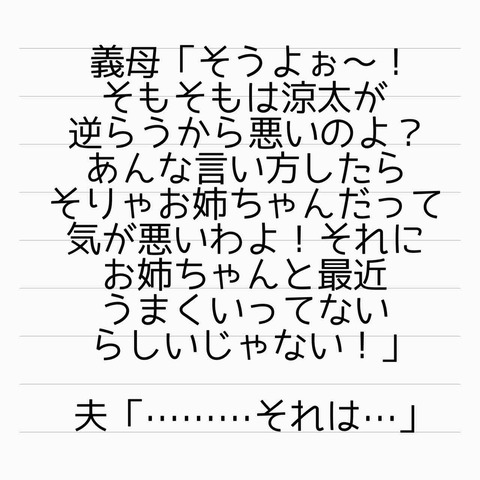 義母「そうよぉ～！
そもそもは涼太が
逆らうから悪いのよ？
あんな言い方したら
そりゃお姉ちゃんだって
気が悪いわよ！それに
お姉ちゃんと最近
うまくいってない
らしいじゃない！」
夫「………それは…」